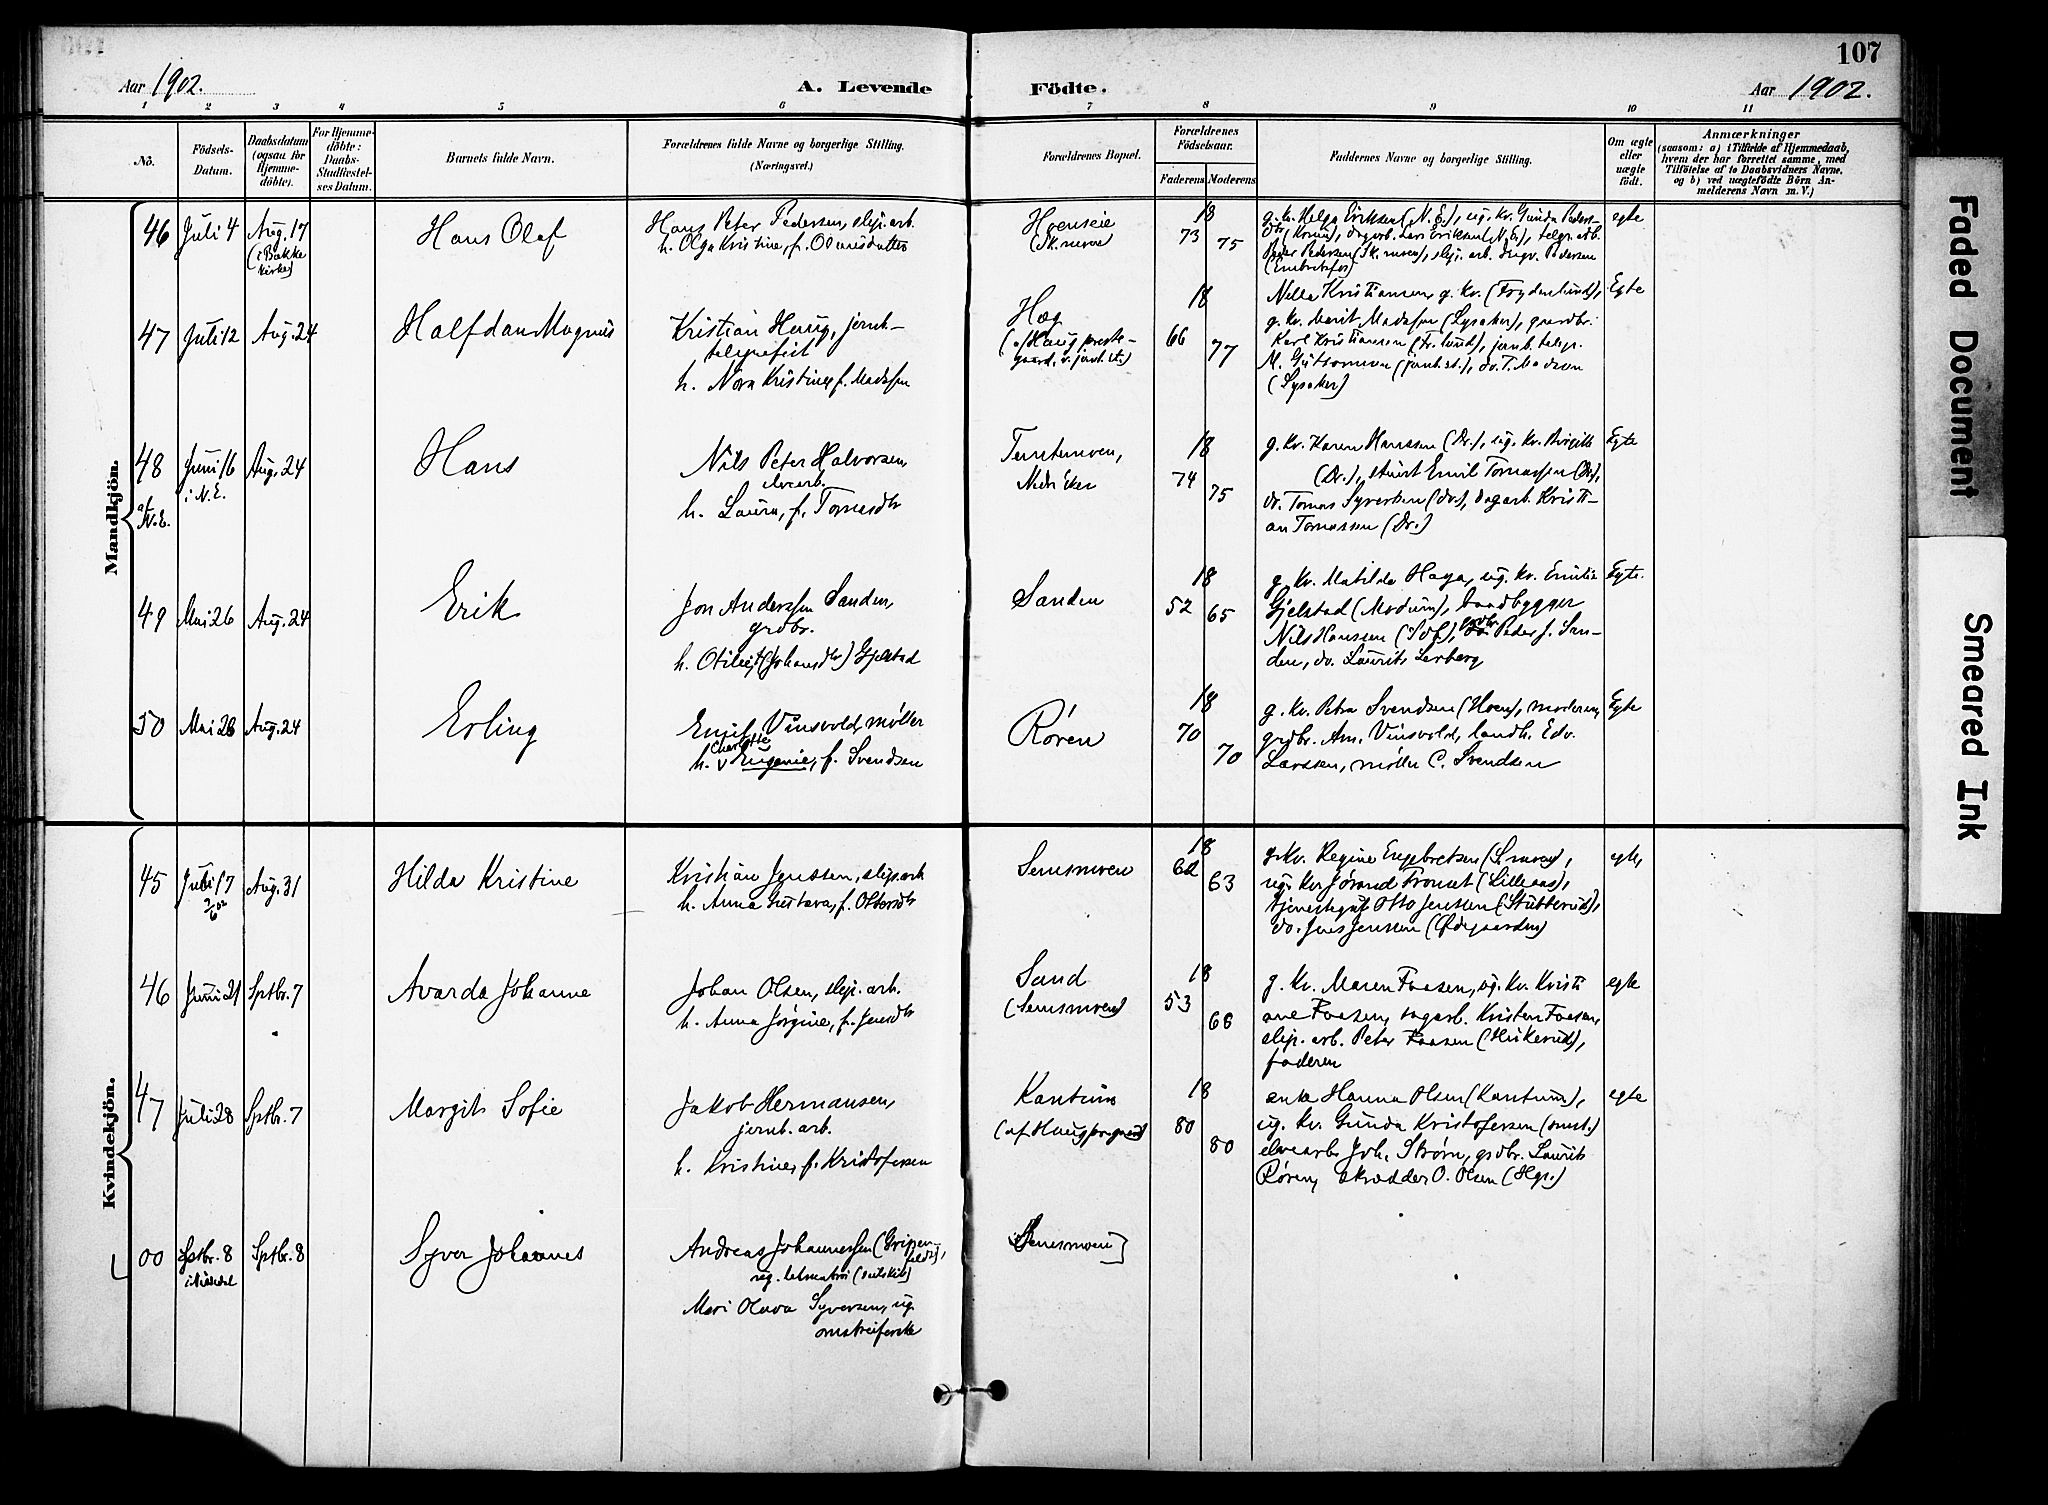 107
Aar 1902.
A. Levende
Födte.
Aar 1902.
1 2 3 4 5 6 7 8 9 10 11
No.
Födsels-
Datum.
Daabsdatum
(ogsaa for
Hjemme-
döbte).
For Hjemme-
döbte:
Daabs-
Stadfæstel-
ses Datum.
Barnets fulde Navn.
Forældrenes fulde Navne og borgerlige Stilling.
(Næringsvei.)
Forældrenes Bopæl.
Forældrenes
Födselsaar.
Faderens Moderens
Faddernes Navne og borgerlige Stilling.
Om ægte
eller
uægte
födt.
Anmærkninger
(saasom: a) i Tilfælde af Hjemmedaab,
hvem der har forrettet samme, med
Tilföielse af to Daabsvidners Navne,
og b) ved uægtefödte Börn An-
melderens Navn m. V.)
Mandkjön.
46 Juli 4 Aug. 17
(i Bakke
kirke)
Hans Olaf
Hans Peter Pedersen, slip. arb.
h. Olga Kristine, f. Olausdatter
Hoenseie
(Sk. moen)
18
73 75
g. kv. Helga Eriksen (N. E.), ug. kv. Gunda Peders-
dtr, dagarb. Lars Eriksen (N. E.),
Peder Pedersen (Sk. moen), slip. arb. Ingv. Pedersen
(Embretsfos)
egte
47 Juli 12 Aug. 24
Halfdan Magnus
Kristian Haug, jernb-
telegrafist
h. Nora Kristine, f. Madsen
Hæg
(af Haug preste-
gaard, v. jernb. st.)
18
66 77
Nella Kristiansen, g. kv. (Frydenlund),
g. kv. Marit Madsen (Lysaker), gaardbr.
Karl Kristiansen (Fr. lund), jernb. telegr.
M. Guttormsen (jernb. st.), do. T. Madsen
(Lysaker)
Egte
48
af
N. E.
Juni 16
i N. E.
Aug. 24
Hans
Nils Peter Halvorsen,
elvearb.
h. Laura, f. Tomasdtr
Temtemoen,
Nedr Eker
18
74 75
g. kv. Karen Hanssen (Dr.), ug. kv. Birgitte
(Dr.), Emil Tomassen (Dr.),
do. Tomas Syversen (do), dagarb. Kristi-
an Tomassen (Dr.)
Egte
49 Mai 26 Aug. 24
Erik
Jon Anderssen Sanden,
grdbr.
h. Otilie, f. (Johansdtr) Gjelstad
Sanden
18
52 65
g. kv. Matilde Haga, ug. kv. Emilie
Gjelstad (Modum), baadbygger
Nils Hanssen, grdbr. Peder J. San-
den, do. Laurits Lerberg
Egte.
50 Mai 28 Aug. 24
Erling
Emil Vinsvold, møller
Charlotte
h. Eugenie, f. Svendsen
Røren
18
70 70
g. kv. Petra Svendsen (Hoen), moderen,
grdbr. Am. Vinsvold, landh. Edv.
Larssen, møller C. Svendsen
Egte
Kvindekjön.
45 Juli 7 Aug. 31
Hilda Kristine
Kristian Jenssen, slip. arb
h. Anna Gustava, f. Ottersdtr
Semsmoen
18
62 63
g. kv. Regine Engebretsen (S. moen),
ug. kv. Jørand Tronset (Lilleaas),
tjenestegut Otto Jenssen (Stubberud),
do. Jens Jenssen (Ødegaarden)
egte
46 Juni 21 Sptbr. 7
Avarda Johanne
Johan Olsen, slip. arb.
h. Anna Jørgine, f. Jensdtr
Sand
(Semsmoen)
18
53 66
g. kv. Maren Faasen, ug. kv. Kristi
ane Faasen, sagarb. Kristen Faasen,
slip. arb. Peter Faasen,
faderen
egte
47 Juli 28 Sptbr. 7
Margit Sofie
Jakob Hermansen,
jernb. arb.
h. Kristine, f. Kristofersen
Kantum
(af Haug pr.gaard)
18
80 80
enke Hanna Olsen (Kantum),
ug. kv. Gunda Kristofersen
elvearb. Joh. Strøm, grdbr. Laurits
Røren, skrædder O. Olsen (Hgs.)
egte
00 Sptbr. 8 Sptbr. 8
Syver Johannes
Andreas Johannessen (Grippen-
feldt),
Mari Olava Syversen, ug.
omstreiferske
Semsmoen
Faded Document
Smeared Ink